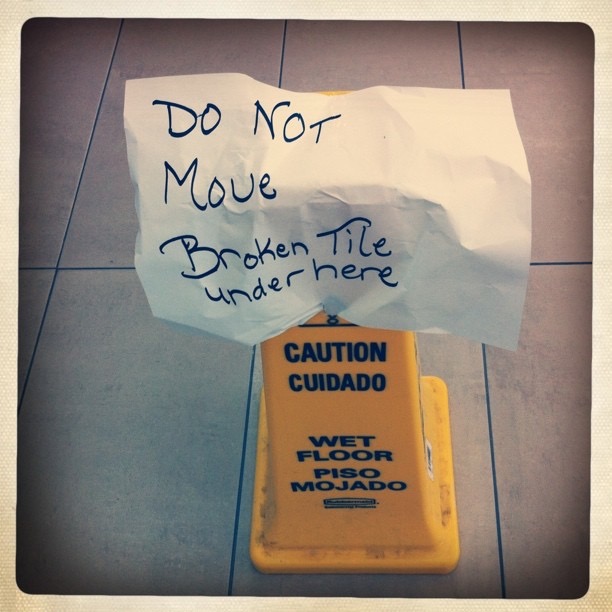 DO NOT
Move
Broken Tile
under here
CAUTION
CUIDADO
WET
FLOOR
PISO
MOJADO